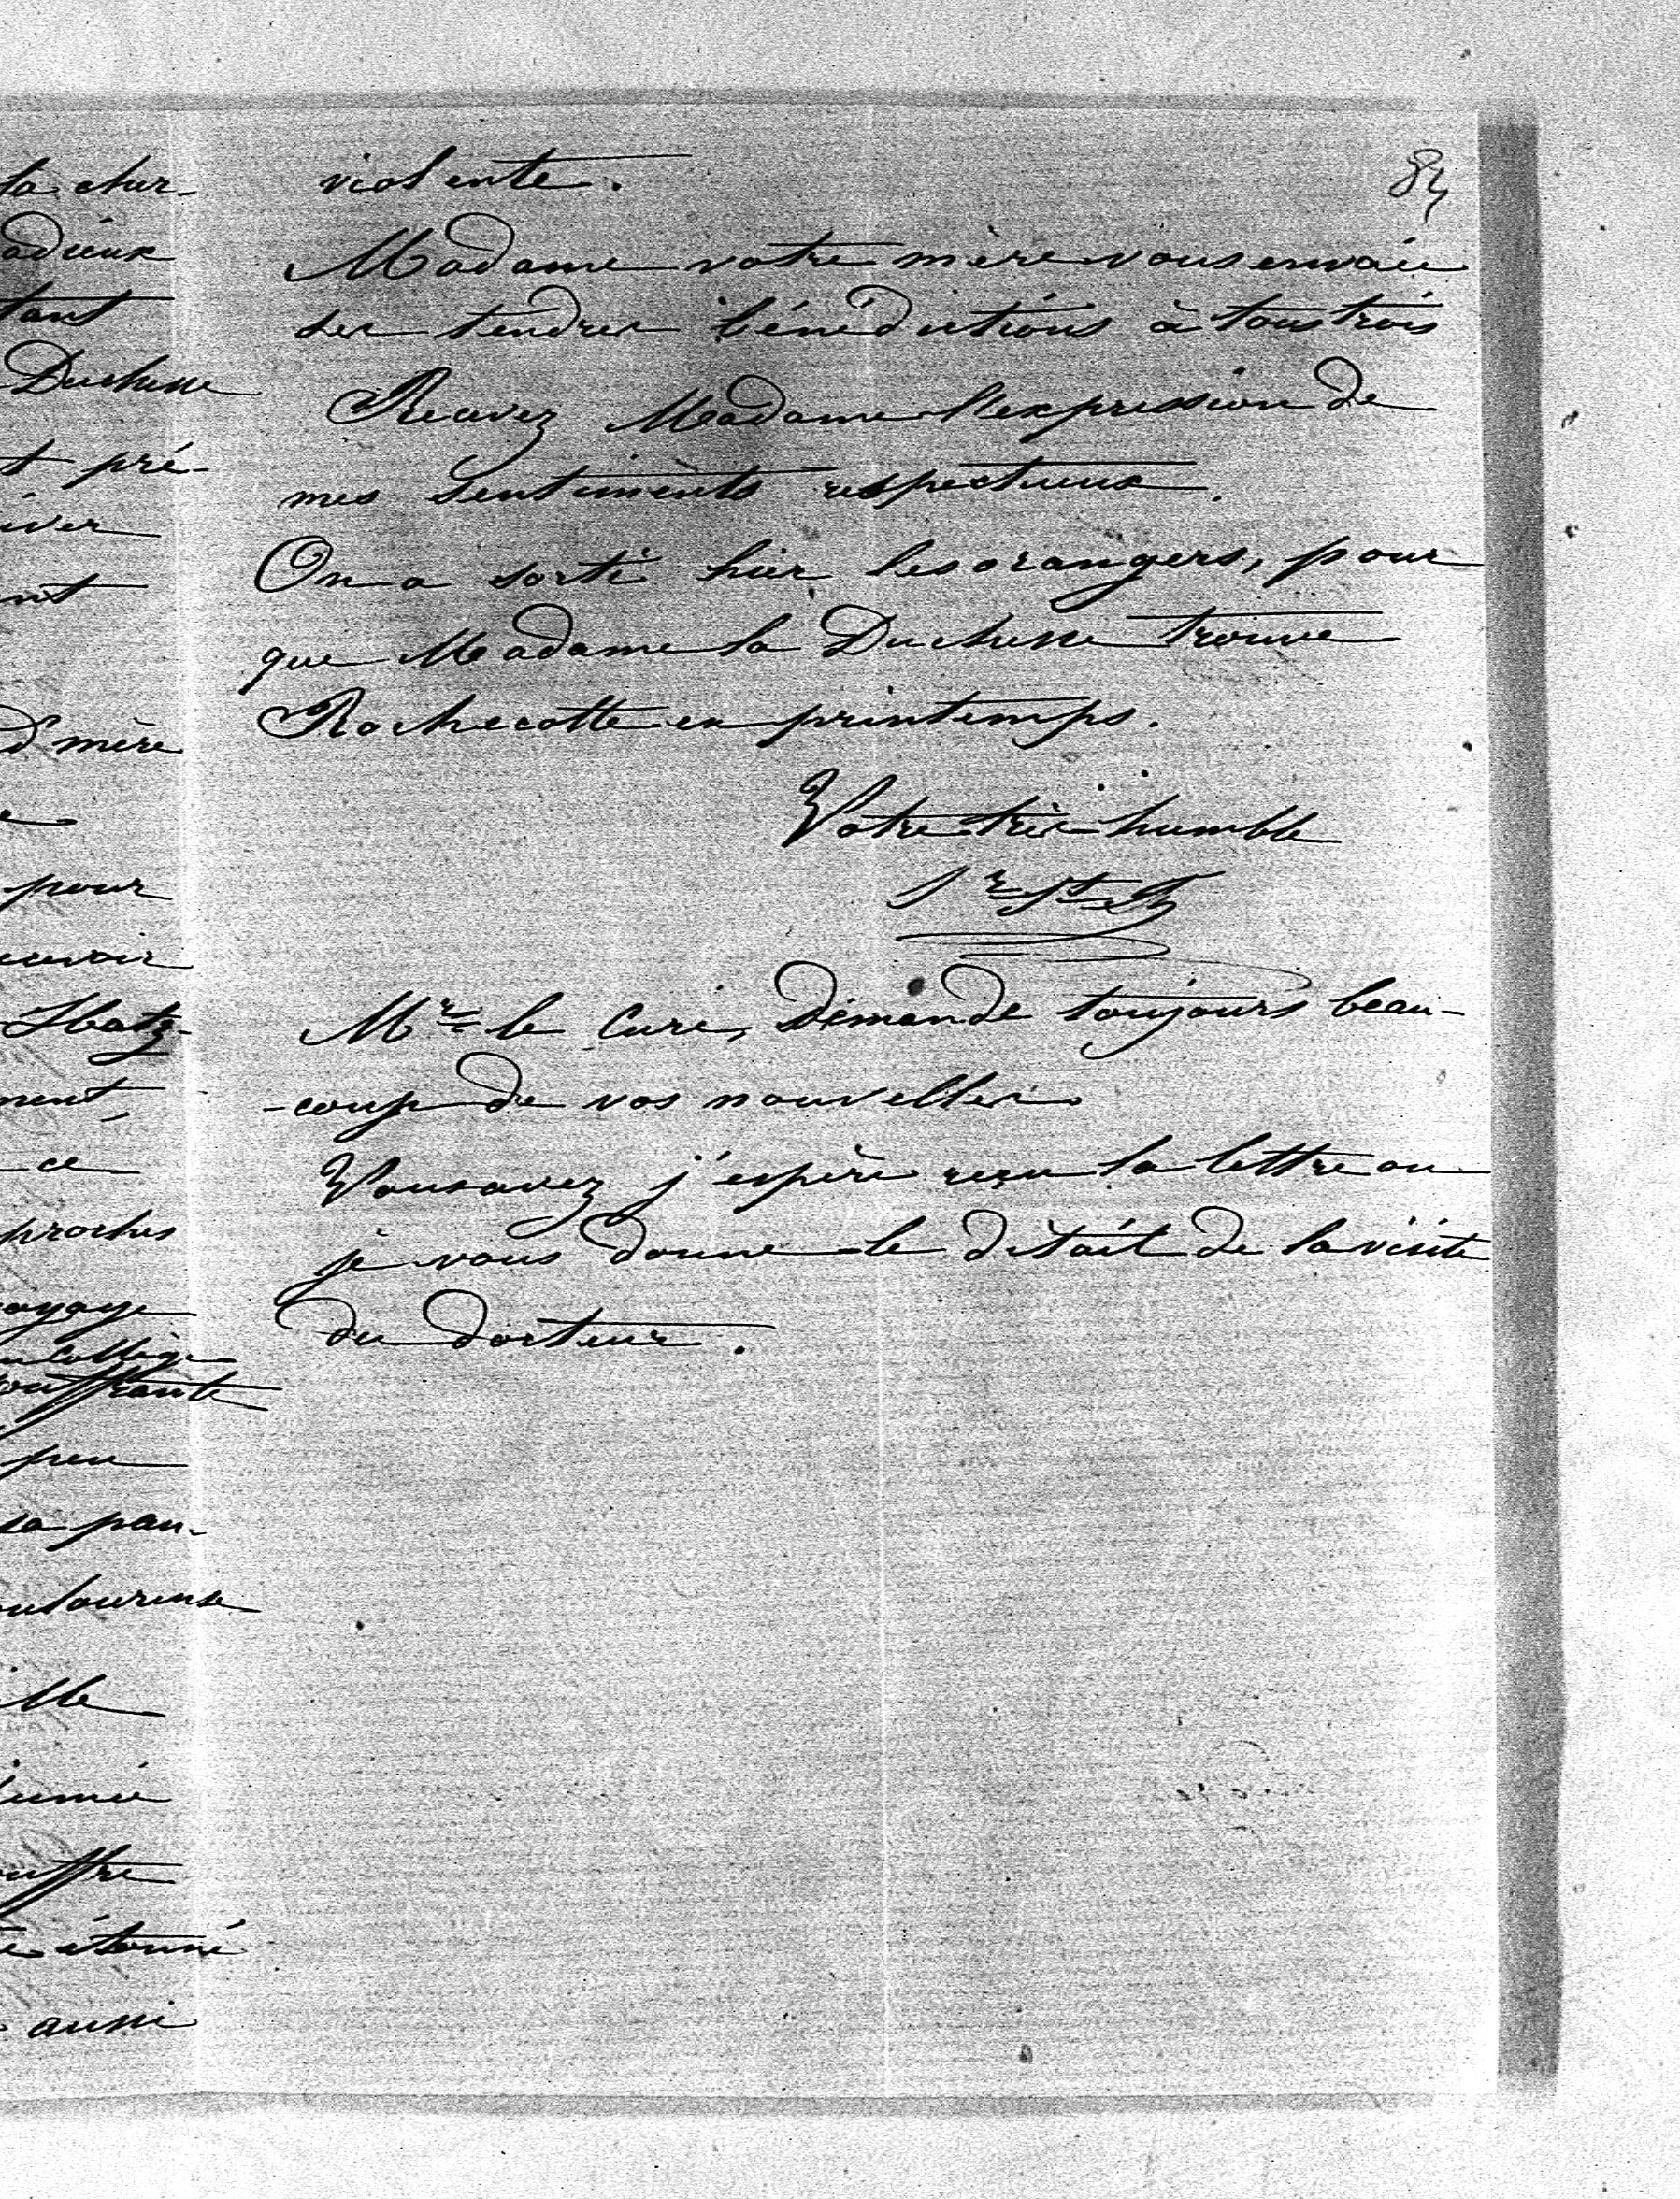 la cher-
adieux
tant
Duchesse
t pré-
iver
ent
d'mère
pour
cevoir
Hatz-
ment,
ce
proches
oyage
u College
ouffrante
peu
sa pau-
ouloureuse
ille
uffre
e étonné
aussi
84
violente.
Madame votre mère vous envoie
ses tendres bénédictions à tous trois
Recevez Madame l'expression de
mes sentiments respectueux.
On a sorti hier les orangers, pour
que Madame la Duchesse trouve
Rochecotte en printemps.
Votre très humble
Mr le Curé, demande toujours beau-
-coup de vos nouvelles.
Vous avez j'espère reçu la lettre ou
je vous donne le détail de la visite
du docteur.